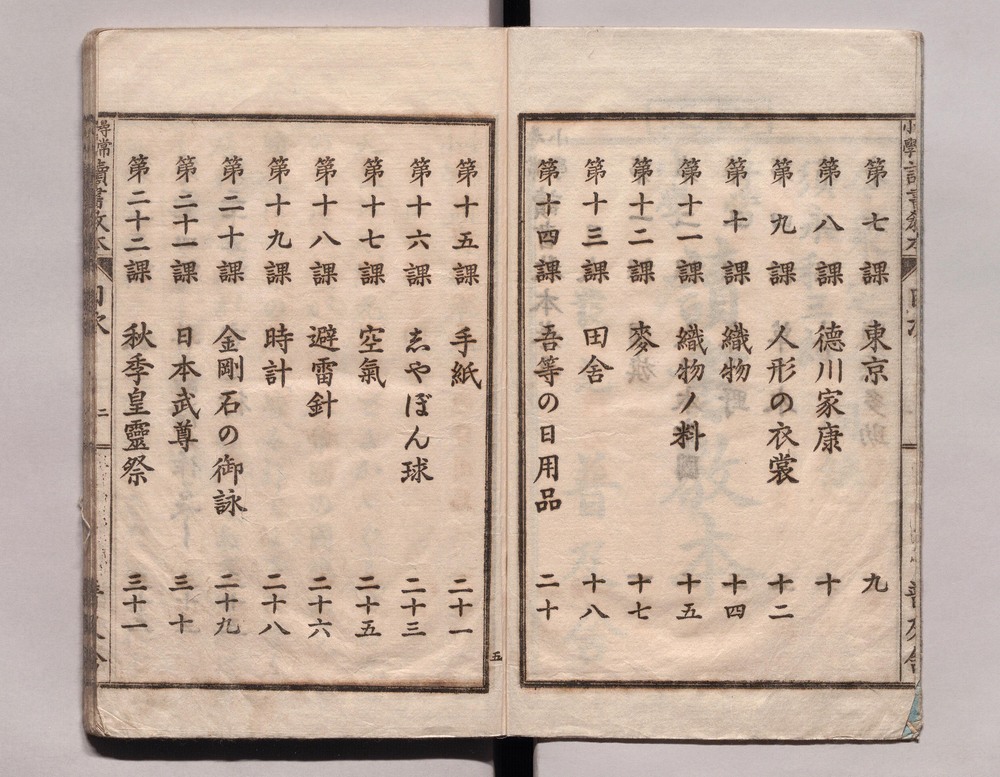 第七課 東京 九
第八課 德川家康 十
第九課 人形の衣裳 十二
第十課 織物 十四
第十一課 織物ノ料 十五
第十二課 麥 十七
第十三課 田舍 十八
第十四課 吾等の日用品 二十
第十五課 手紙 二十一
第十六課 志やぼん球 二十三
第十七課 空氣 二十五
第十八課 避雷針 二十六
第十九課 時計 二十八
第二十課 金剛石の御詠 二十九
第二十一課 日本武尊 三十
第二十二課 秋季皇靈祭 三十一
五
尋常讀書敎本
目次
二